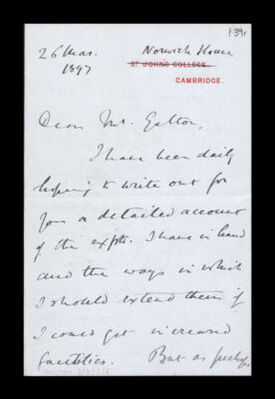 F39r
26 Mar. Norwich House
1897 ST JOHN'S COLLEGE.
CAMBRIDGE.
Dear Mr. Galton,
I have been daily
hoping to write out for
you a detailed account
of the expts. I have in hand
and the ways in which
I should extend them if
I could get increased
facilities. But as perhaps